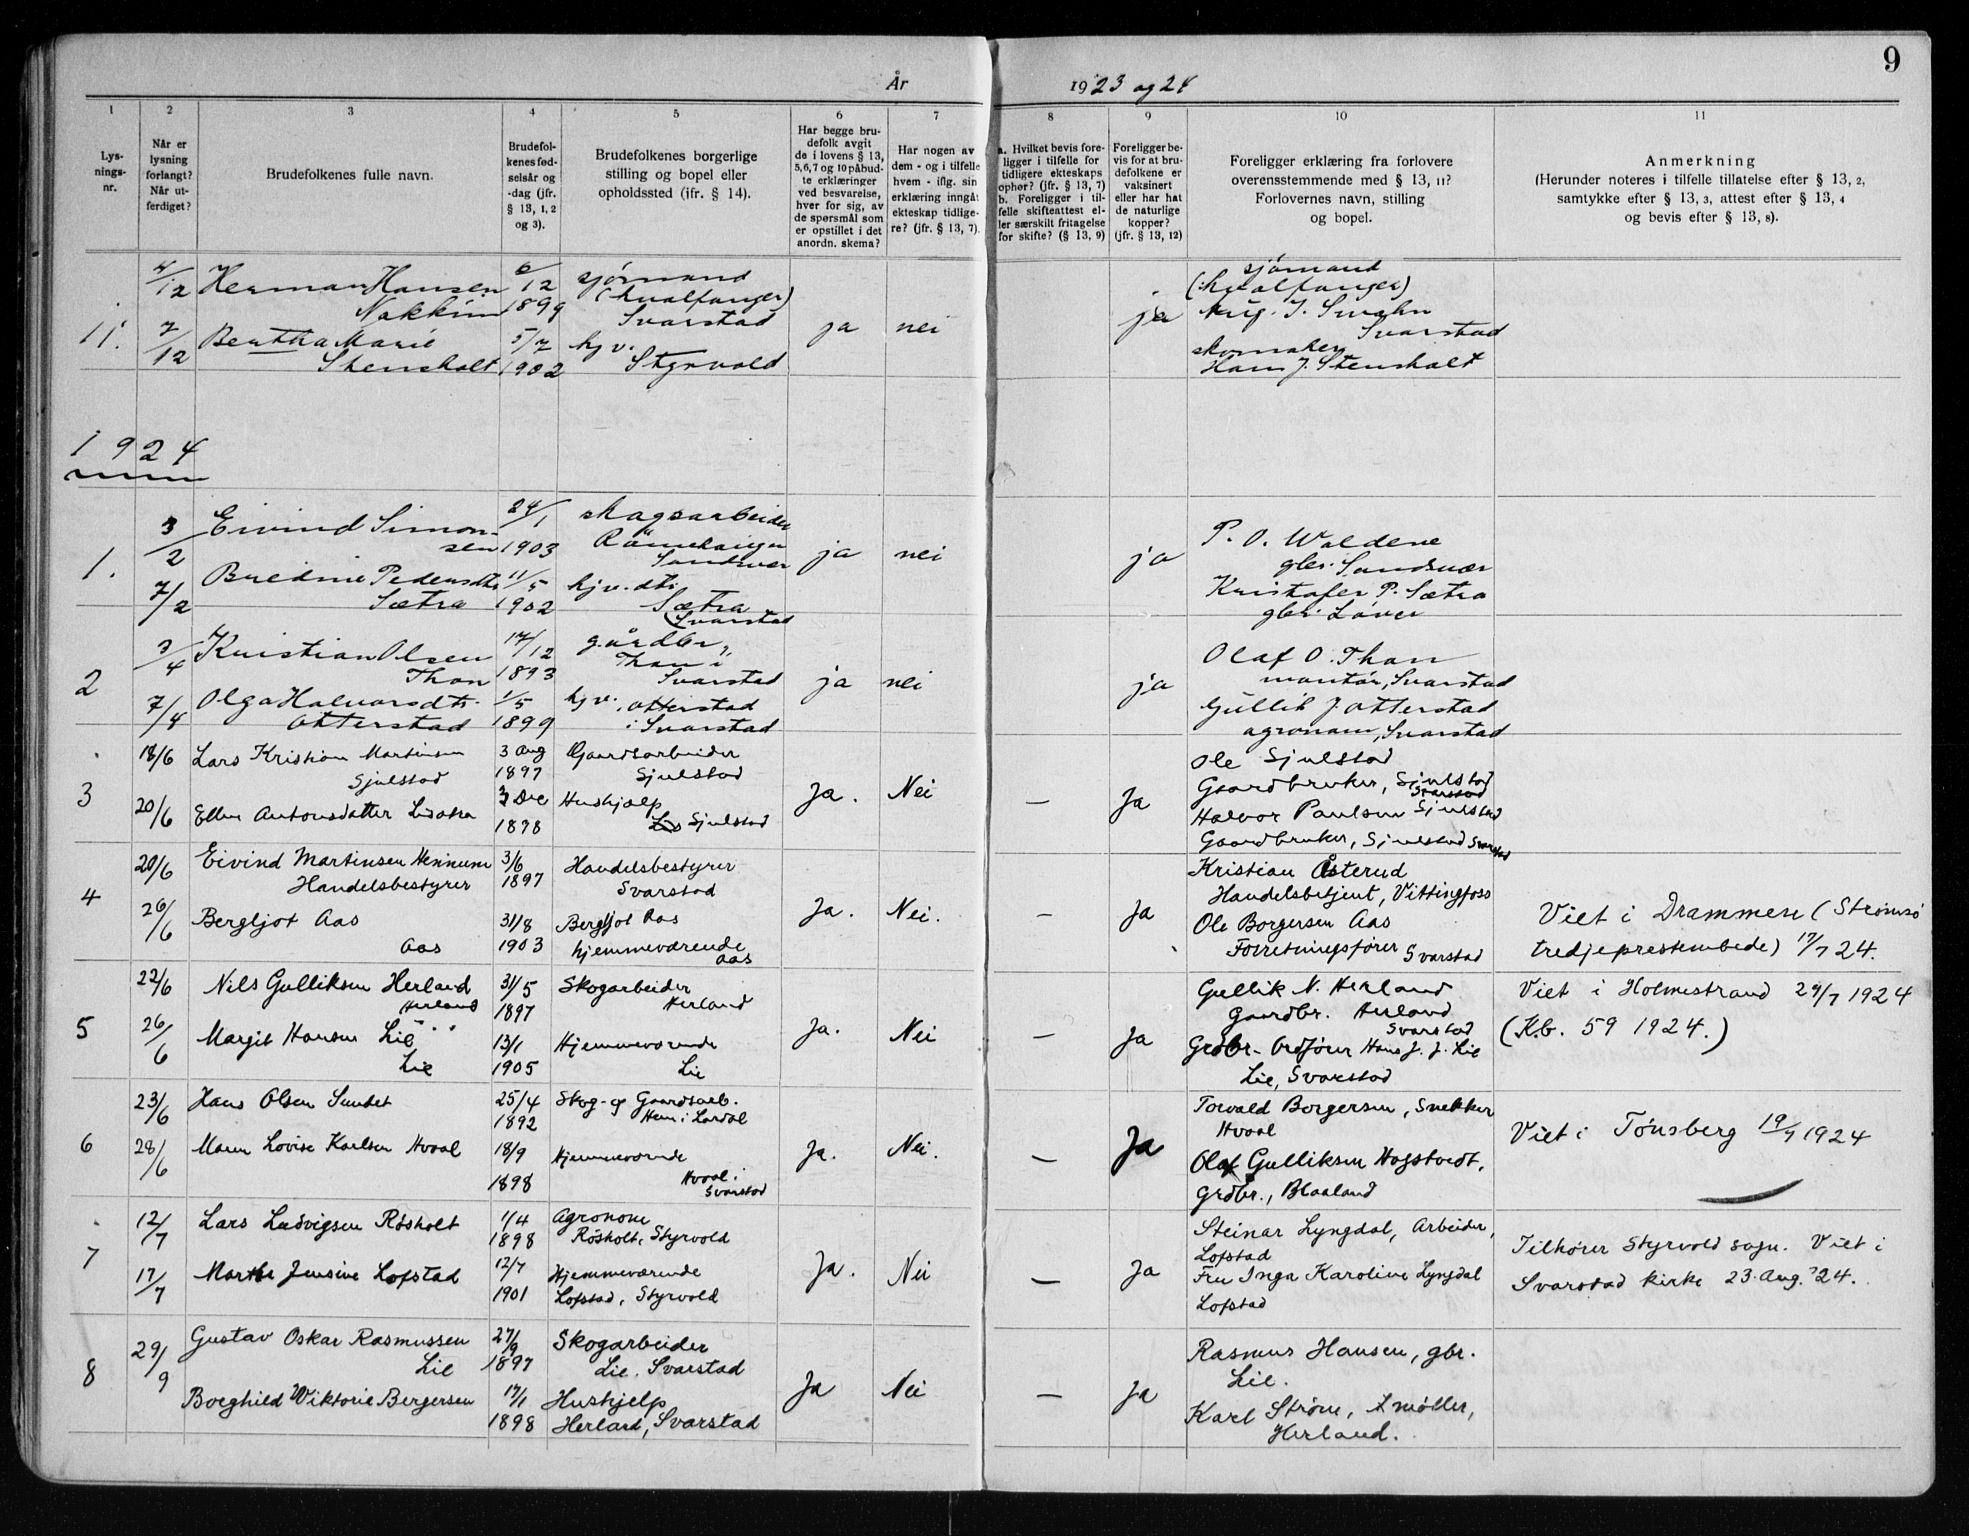 9
År 1923 og 24
1
2
3
4
5
6
7
8
9
10
11
Lys-
nings-
nr.
Når er
lysning
forlangt?
Når ut-
ferdiget?
Brudefolkenes fulle navn.
Brudefol-
kenes fød-
selsår og
-dag (jfr.
§ 13, 1, 2
og 3).
Brudefolkenes borgerlige
stilling og bopel eller
opholdssted (ifr. § 14).
Har begge bru-
defolk avgit
de i lovens § 13,
5,6,7 og 10 påbud-
te erklæringer
ved besvarelse,
hver for sig, av
de spørsmål som
er opstillet i det
anordn. skema?
Har nogen av
dem - og i tilfelle
hvem - iflg. sin
erklæring inngåt
ekteskap tidlige-
re? (jfr. § 13, 7).
a. Hvilket bevis fore-
ligger i tilfelle for
tidligere ekteskaps
ophør? (jfr. § 13, 7)
b. Foreligger i til-
felle skifteattest el-
ler særskilt fritagelse
for skifte? (§ 13, 9)
Foreligger be-
vis for at bru-
defolkene er
vaksinert
eller har hat
de naturlige
kopper?
(jfr. § 13, 12)
Foreligger erklæring fra forlovere
overensstemmende med § 13, 11?
Forlovernes navn, stilling
og bopel.
Anmerkning
(Herunder noteres i tilfelle tillatelse efter § 13, 2,
samtykke efter § 13, 3, attest efter § 13, 4
og bevis efter § 13, 8).
11.
4/12
7/12
Herman Hansen
Nakkim
Bertha Marie
Stensholt
6/12
1899
5/7
1902
sjømand
(hvalfanger)
Svarstad
hjv.
Styrvold
ja
nei
ja
sjømand
(hvalfanger)
Aug. J. Svahn
Svarstad
skomaker
Hans J. Stensholt
1924
1.
3/2
7/2
Eivind Simon-
sen
Bredine Pedersdtr
Sætra
24/1
1903
11/5
1902
skogsarbeider
Sandsvær
hjv. dtr.
Sætra
Svarstad
ja
nei
ja
P. O. Waldene
gbr. Sandsvær
Kristofer P. Sætra
gbr. Løver
2
3/4
7/4
Kristian Olsen
Than
Olga Halvorsdtr.
Otterstad
17/12
1893
1/5
1899
gårdbr.,
Than i
Svarstad
hjv., Otterstad
i Svarstad
ja
nei
ja
Olaf O. Than
montør, Svarstad
Gullik J. Otterstad
agronom, Svarstad
3
18/6
20/6
Lars Kristian Martinsen
Sjulstad
Ellen Antonsdatter
3 Aug
1897
Dec
1898
Gaardsarbeider
Sjulstad
Hushjælp
Sjulstad
Ja.
Nei
—
Ja
Ole Sjulstad
Gaardbruker, Sjulstad
Svarstad
Halvor Paulsen Sjulstad
Gaardbruker, Sjulstad Svarstad
4
20/6
26/6
Eivind Martinsen Hennum
Handelsbestyrer
Bergljot Aas
Aas
3/6
1897
31/8
1903
Handelsbestyrer
Svarstad
Bergljot Aas
hjemmeværende
Aas
Ja.
Nei.
—
Ja
Kristian Åsterud
Handelsbetjent, Vittingfoss
Ole Borgersen Aas
Forretningsfører Svarstad
Viet i Drammen (Strømsø
tredjeprestembede) 17/7 24.
5
22/6
26/6
Nils Gulliksen Herland
Herland
Margit Hansen Lie
Lie
31/5
1897
13/1
1905
Skogarbeider
Herland
Hjemmeværende
Lie
Ja.
Nei
—
Ja
Gullik N. Herland
Gaardbr. Herland
Svarstad
Grdbr. Ordfører Hans J. J. Lie
Lie, Svarstad
Viet i Holmestrand 29/7 1924
(Kb. 59 1924.)
6
23/6
28/6
Hans Olsen Sundet
Maren Lovise Karlsen Hvaal
25/4
1892
18/9
1898
Skog- og Gaardsarb.
Hem i Lardal
Hjemmeværende
Hvaal i
Svarstad
Ja.
Nei.
—
Ja
Torvald Borgersen, Snekker
Hvaal
Olaf Gulliksen Hogstvedt,
Grdbr., Blaaland
Viet i Tønsberg 19/7 1924
7
12/7
17/7
Lars Ludvigsen Røsholt
Marthe Jensine Lofstad
1/4
1898
12/7
1901
Agronom
Røsholt, Styrvold
Hjemmeværende
Lofstad, Styrvold
Ja.
Nei
—
Ja
Steinar Lyngdal, Arbeider,
Lofstad
Fru Inga Karoline Lyngdal
Lofstad
Tilhører Styrvold sogn. Viet i
Svarstad kirke 23. Aug. '24.
8
29/9
Gustav Oskar Rasmussen
Lie
Borghild Wiktorie Bergersen
27/9
1897
17/1
1898
Skogarbeider
Lie. Svarstad
Hushjelp
Herland, Svarstad
Ja
Nei
—
Ja
Rasmus Hansen, gbr.
Lie.
Karl Strøm, møller,
Herland.